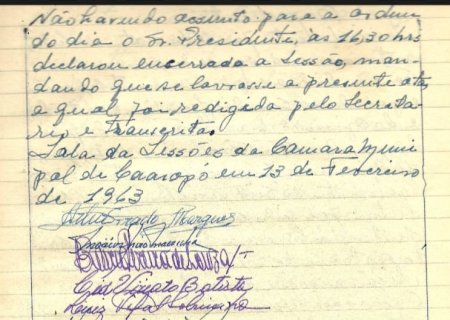 Não havendo assunto para a ordem
do dia o Sr. Presidente, as 16,30 hrs
declarou encerrada a Sessão, man-
dando que se lavrasse a presente ata,
a qual foi redigida pelo Secreta-
rio e transcrita.
Sala da Sessões da Camara Muni
pal de Caarapó em 13 de Fevereiro
de 1963
Marques
Cid Viriato Batista